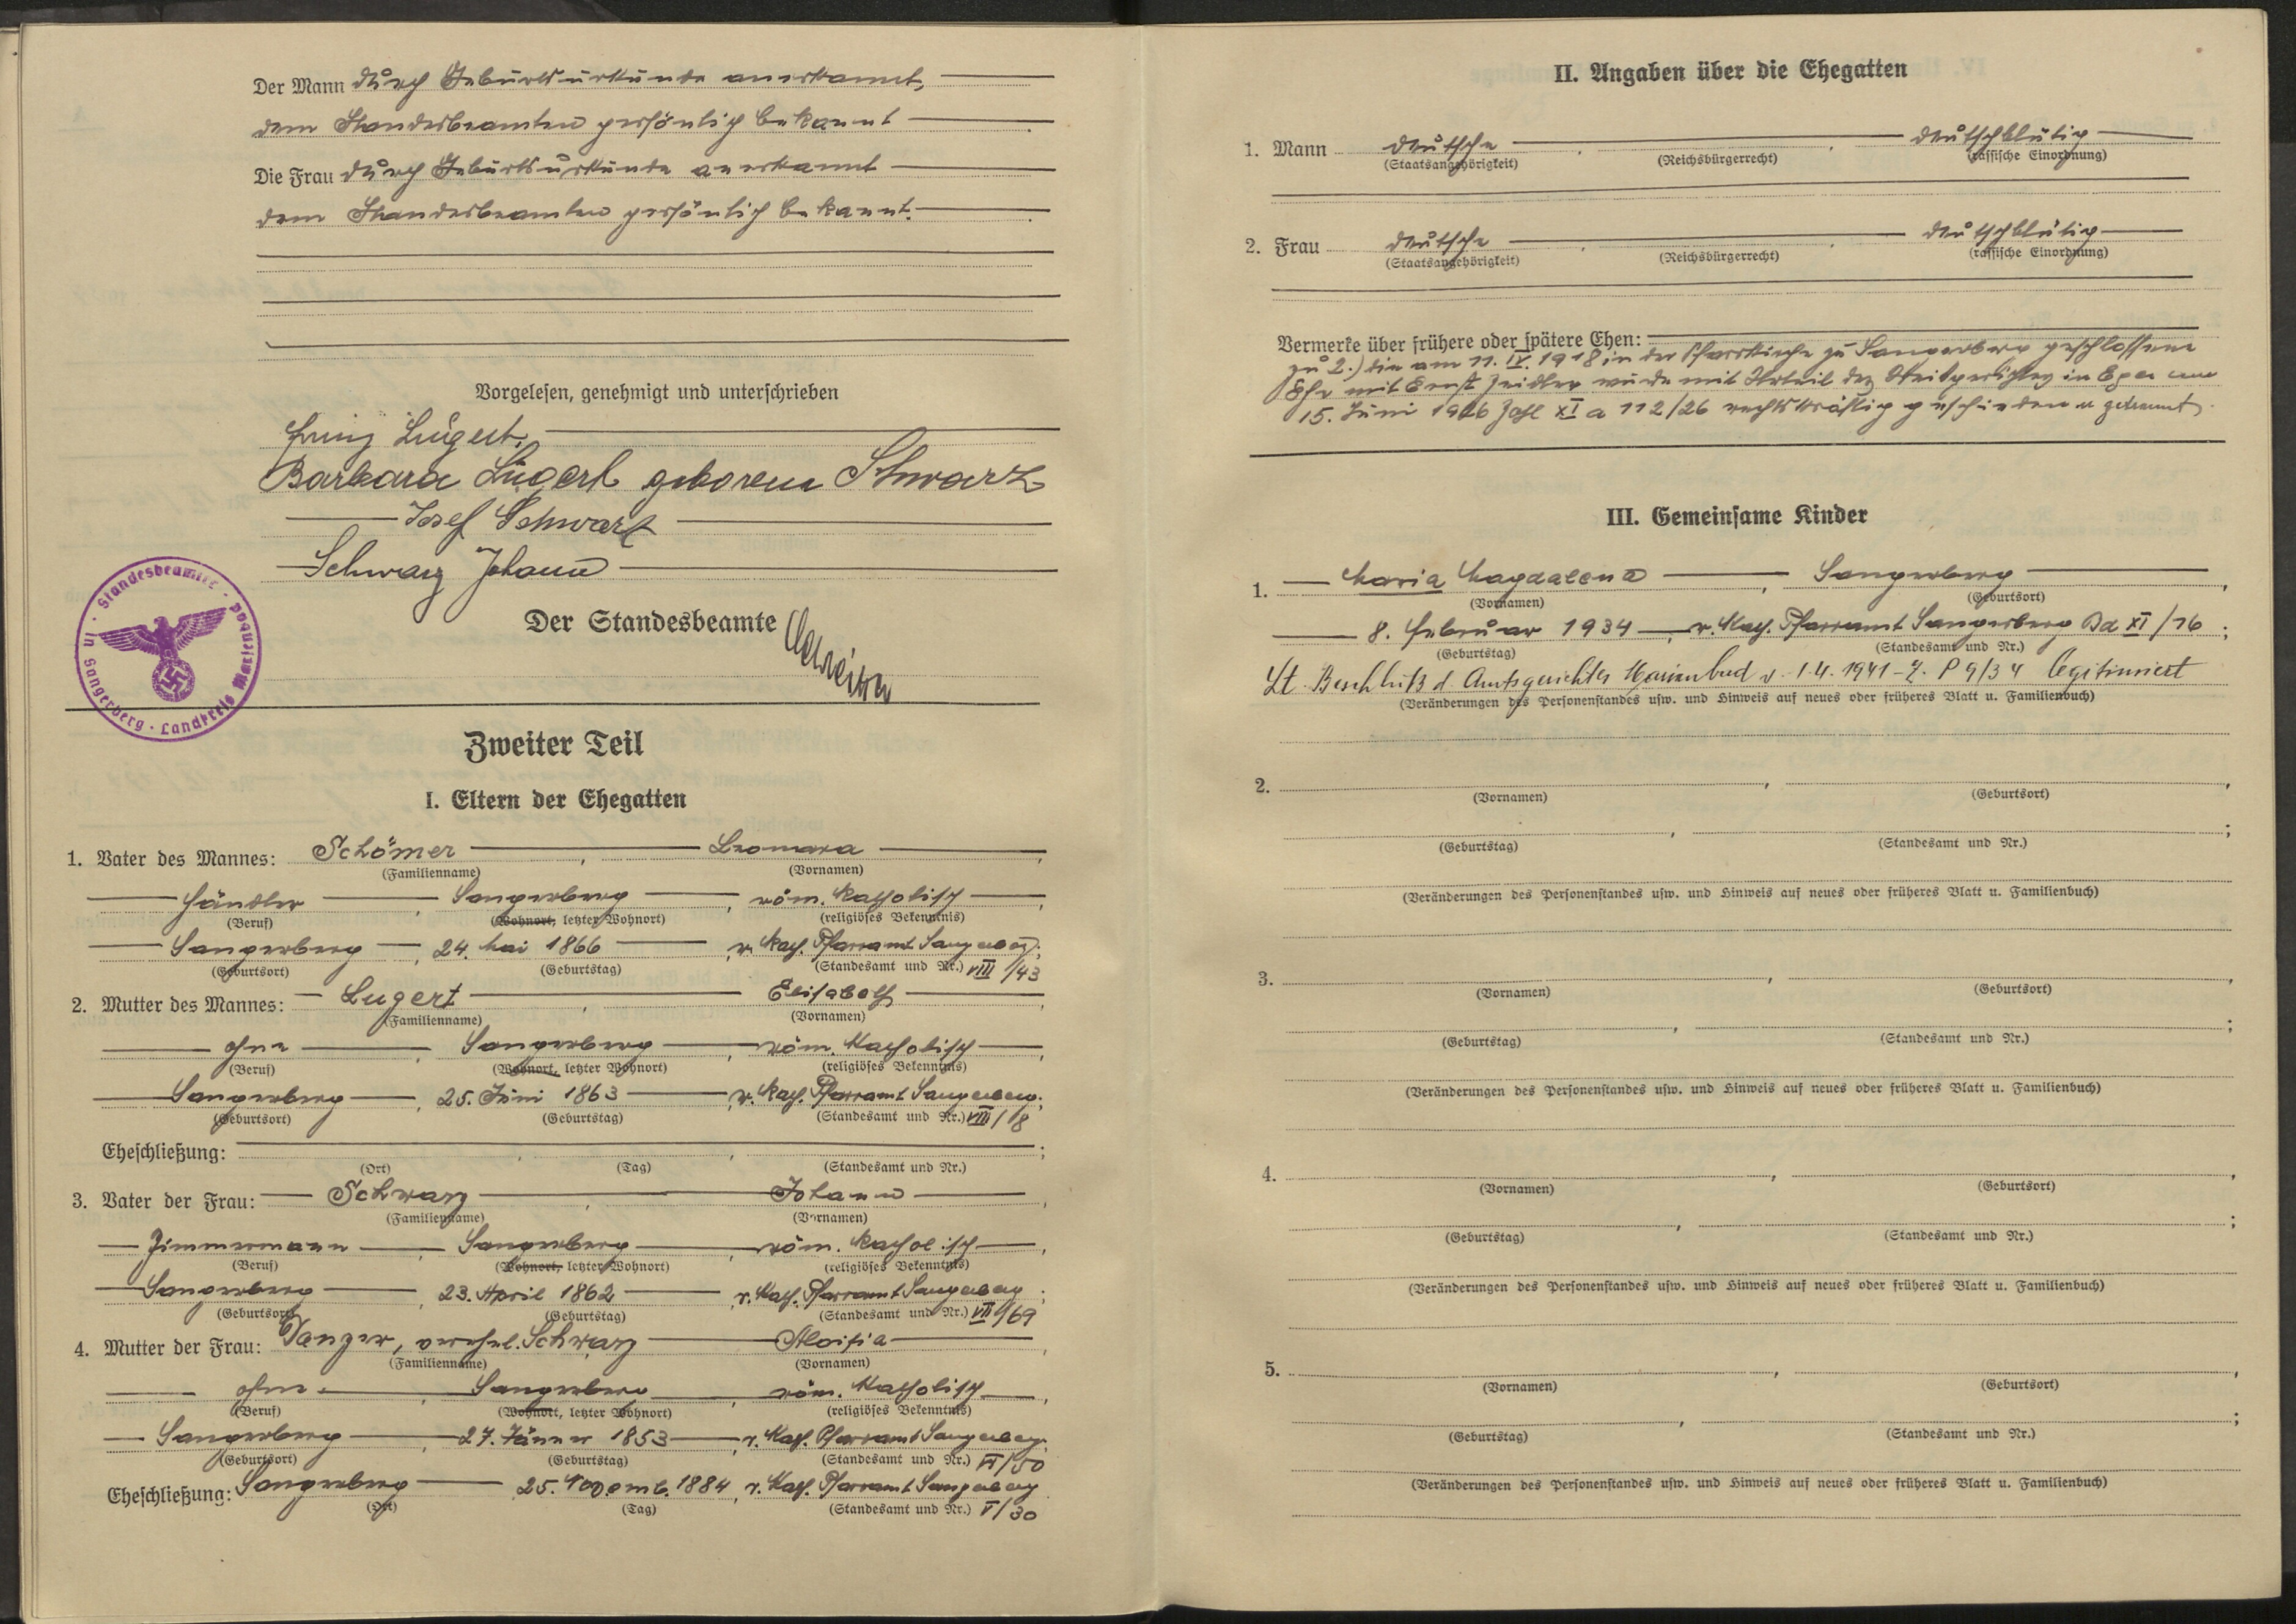 Der Mann durch Geburtsurkunde anerkannt,
dem Standesbeamten persönlich bekannt
Die Frau durch Geburtsurkunde anerkannt
dem Standesbeamten persönlich bekannt.
Vorgelesen, genehmigt und unterschrieben
Lugert.
Barbara Lugert geborene Schwarz
Josef Schwarz
Schwarz Johann
Der Standesbeamte
Standesbeamter · in Sangerberg · Landkreis Marienbad
Zweiter Teil
I. Eltern der Ehegatten
1. Vater des Mannes: Schömer, ,
(Familienname) (Vornamen)
Händler, Sangerberg, röm. katholisch,
(Beruf) (Wohnort, letzter Wohnort) (religiöses Bekenntnis)
Sangerberg, 24. Mai 1866, r. kath. Pfarramt Sangerberg;
(Geburtsort) (Geburtstag) (Standesamt und Nr.) VIII/43
2. Mutter des Mannes: Lugert, Elisabeth,
(Familienname) (Vornamen)
ohne, Sangerberg, röm. katholisch,
(Beruf) (Wohnort, letzter Wohnort) (religiöses Bekenntnis)
Sangerberg, 25. Juni 1863, r. kath. Pfarramt Sangerberg;
(Geburtsort) (Geburtstag) (Standesamt und Nr.) VIII/18
Eheschließung: , , ;
(Ort) (Tag) (Standesamt und Nr.)
3. Vater der Frau: Schwarz, Johann,
(Familienname) (Vornamen)
Zimmermann, Sangerberg, röm. katholisch,
(Beruf) (Wohnort, letzter Wohnort) (religiöses Bekenntnis)
Sangerberg, 23. April 1862, r. kath. Pfarramt Sangerberg;
(Geburtsort) (Geburtstag) (Standesamt und Nr.) VII/69
4. Mutter der Frau: Danzer, verehel. Schwarz, Aloisia,
(Familienname) (Vornamen)
ohne, Sangerberg, röm. katholisch,
(Beruf) (Wohnort, letzter Wohnort) (religiöses Bekenntnis)
Sangerberg, 27. Jänner 1853, r. kath. Pfarramt Sangerberg;
(Geburtsort) (Geburtstag) (Standesamt und Nr.) VI/50
Eheschließung: Sangerberg, 25. Novemb. 1884, r. kath. Pfarramt Sangerberg
(Ort) (Tag) (Standesamt und Nr.) V/30
II. Angaben über die Ehegatten
1. Mann deutsche, , deutschblütig
(Staatsangehörigkeit) (Reichsbürgerrecht) (rassische Einordnung)
2. Frau deutsche, , deutschblütig
(Staatsangehörigkeit) (Reichsbürgerrecht) (rassische Einordnung)
Vermerke über frühere oder spätere Ehen:
zu 2.) die am 11. IV. 1918 in der Pfarrkirche zu Sangerberg geschlossene
Ehe mit Ernst Zeidler wurde mit Urteil des Kreisgerichtes in Eger vom
15. Juni 1926 Zahl XI a 112/26 rechtskräftig geschieden u. getrennt.
III. Gemeinsame Kinder
1. Maria Magdalena, Sangerberg,
(Vornamen) (Geburtsort)
8. Februar 1934, r. kath. Pfarramt Sangerberg Bd XI/16;
(Geburtstag) (Standesamt und Nr.)
Lt. Beschluß d. Amtsgerichtes Marienbad v. 1.4.1941 - Z. P 9/34 legitimiert
(Veränderungen des Personenstandes usw. und Hinweis auf neues oder früheres Blatt u. Familienbuch)
2. , ,
(Vornamen) (Geburtsort)
, ;
(Geburtstag) (Standesamt und Nr.)
(Veränderungen des Personenstandes usw. und Hinweis auf neues oder früheres Blatt u. Familienbuch)
3. , ,
(Vornamen) (Geburtsort)
, ;
(Geburtstag) (Standesamt und Nr.)
(Veränderungen des Personenstandes usw. und Hinweis auf neues oder früheres Blatt u. Familienbuch)
4. , ,
(Vornamen) (Geburtsort)
, ;
(Geburtstag) (Standesamt und Nr.)
(Veränderungen des Personenstandes usw. und Hinweis auf neues oder früheres Blatt u. Familienbuch)
5. , ,
(Vornamen) (Geburtsort)
, ;
(Geburtstag) (Standesamt und Nr.)
(Veränderungen des Personenstandes usw. und Hinweis auf neues oder früheres Blatt u. Familienbuch)